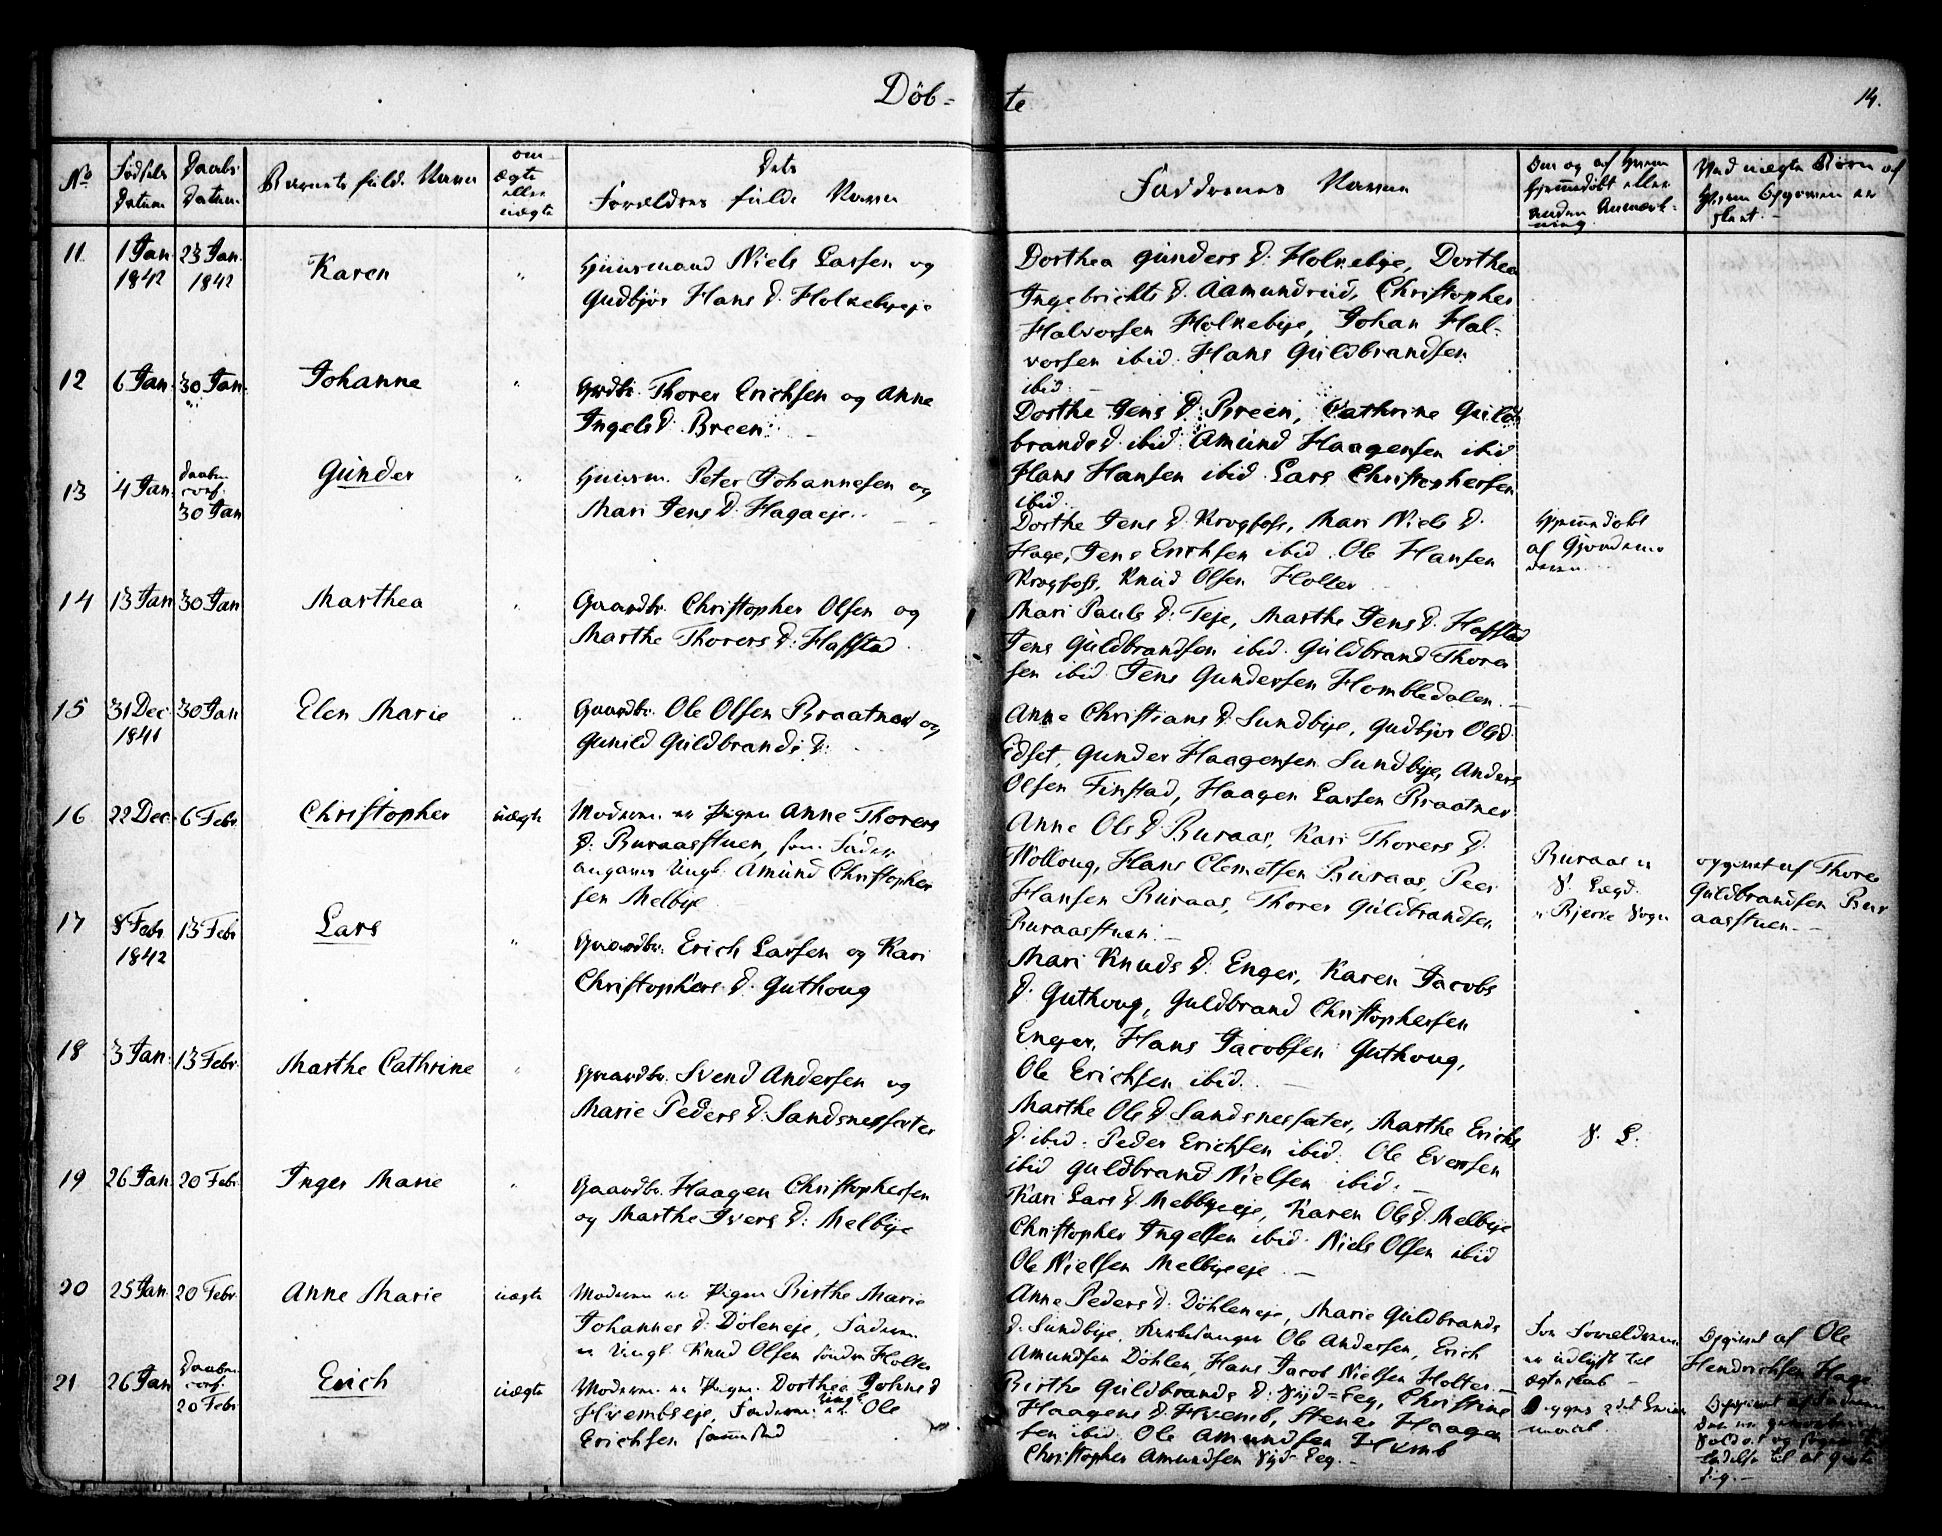 Döb-
te
14.
No
Fødsels Datum
Daabs Datum
Barnets fulde Navn
om ægte eller uægte
Dets Forældres fulde Navn
Faddrenes Navne
Om og af hvem hjemmedøbt eller anden Anmærkning
Ved uægte Børn af hvem Opgiven er skeet.
11. 1 Jan. 1842 23 Jan. 1842 Karen " Huusmand Niels Larsen og
Gudbjør Hans D. Holkebyeje
Dorthea Gunders D. Holkebye, Dorthea
Ingebrichts D. Aamundrud, Christopher
Halvorsen Holkebye, Johan Hal-
vorsen ibid. Hans Guldbrandsen
ibid.
12 6 Jan. 30 Jan. Johanne " Grdbr. Thorer Erichsen og Anne
Ingels D. Breen.
Dorthe Jens D. Breen, Cathrine Guld
brands D. ibid. Amund Haagensen ibid
Hans Hansen ibid. Lars Christophersen
ibid.
13 4 Jan. Daaben conf. 30 Jan Gunder " Huusm. Peter Johannesen og
Mari Jens D. Hagaeje.
Dorthe Jens D. Krogfoss, Mari Niels D.
Hage, Jens Erichsen ibid. Ole Hansen
Krogfoss, Knud Olsen Holter
Hjemmedøbt
af Gjordemo
deren
14 13 Jan 30 Jan Marthea " Gaardbr. Christopher Olsen og
Marthe Thorers D. Haffstad
Mari Pauls D. Teje, Marthe Jens D. Haffstad
Jens Guldbrandsen ibid. Guldbrand Thorer
sen ibid. Jens Gundersen Hombledalen.
15 31 Dec. 1841 30 Jan Elen Marie " Gaardbr. Ole Olsen Braatner og
Gunild Guldbrands D.
Anne Christians D. Sundbye, Gudbjør Ols D
Edset, Gunder Haagensen Sundbye, Anders
Olsen Finstad, Haagen Larsen Braatner
16 22 Dec. 6 Febr. Christopher uægte Moderen er Pigen Anne Thorers
D. Buraasstuen, som Fader
angaves Ungk. Amund Christopher
sen Melbye
Anne Ols D. Buraas, Kari Thorers D.
Nolloug, Hans Clemetsen Buraas, Peer
Hansen Buraas, Thorer Guldbrandsen
Buraasstuen.
Buraas
S. Lægd
Bjerke Sogn
opgivet af Thorer
Guldbrandsen Bur
aasstuen.
17 8 Febr 1842 13 Febr Lars " Gaardbr. Erich Larsen og Kari
Christophers D. Guthoug
Mari Knuds D. Enger, Karen Jacobs
D. Guthoug, Guldbrand Christophersen
Enger, Hans Jacobsen Guthoug,
Ole Erichsen ibid.
18 3 Jan. 13 Febr. Marthe Cathrine " Gaardbr. Svend Andersen og
Marie Peders D. Sandsnessæter
Marthe Ols D. Sandsnessæter, Marthe Erichs
D. ibid. Peder Erichsen ibid. Ole Eversen
ibid Guldbrand Nielsen ibid.
S. L.
19 26 Jan. 20 Febr. Inger Marie " Gaardbr. Haagen Christophersen
og Marthe Ivers D. Melbye
Kari Lars D. Melbyeeje, Karen Ols D. Melbye
Christopher Ingelsen ibid. Niels Olsen ibid
Ole Nielsen Melbyeeje
20 25 Jan. 20 Febr. Anne Marie uægte Moderen er Pigen Birthe Marie
Johannes D. Döleneje, Faderen
er Ungk. Knud Olsen söndre Holter
Anne Peders D. Döhleneje, Marie Guldbrands
D. Sundbye, Kirkesanger Ole Andersen, Erich
Amundsen Döhlen, Hans Jacob Nielsen Holter.
For Forældrene
er udlyst til
ægteskab
Opgivet af Ole
Hendrichsen Hage
21 26 Jan Daaben conf. 20 Febr Erich uægte Moderen er Pigen Dorthea Johns D
Hvembseje, Faderen er Ungk. Ole
Erichsen sammestad
Birthe Guldbrands D. Eeg, Christine
Haagens D. Hvemb, Stener Haagen
sen ibid. Ole Amundsen Hvemb
Christopher Amundsen Eeg.
Opgivet af Faderen
til at gifte
sig.